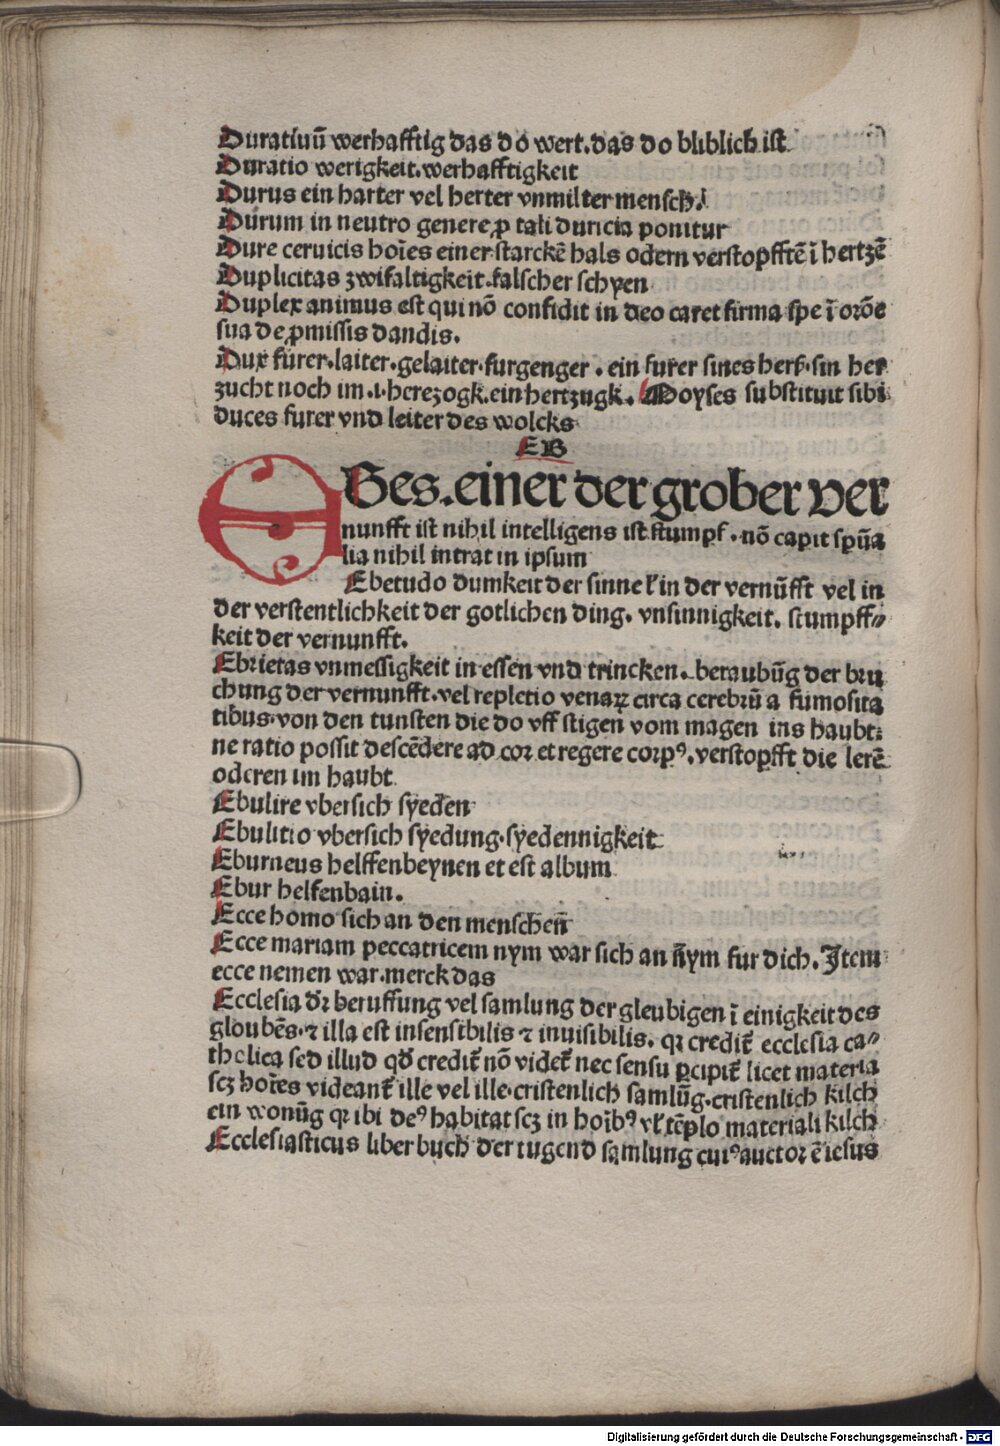 Duratiuū werhafftig das do wert.das do bliblich ist
Duratio werigkeit.werhafftigkeit
Durus ein harter vel herter vnmilter mensch.
Durum in neutro genere ꝓ tali duricia ponitur
Dure ceruicis hoīes einer starckē hals odern verstopfftē ī hertzē
Duplicitas zwifaltigkeit.falscher schyen
Duplex animus est qui nō confidit in deo caret firma spe ī orōe
sua de ꝓmissis dandis.
Dux fürer.laiter.gelaiter.furgenger. ein furer sines hers.sin her
zucht noch im.i.herezogk.ein hertzugk. Moyses substituit sibi
duces furer vnd leiter des wolcks
EB
EBes.einer der grober ver
nunfft ist nihil intelligens ist stumpf.nō capit spūa
lia nihil intrat in ipsum
Ebetudo dumkeit der sinne ł in der vernūfft vel in
der verstentlichkeit der gotlichen ding. vnsinnigkeit. stumpff⸗
keit der vernunfft.
Ebrietas vnmessigkeit in essen vnd trincken.beraubūg der bru
chung der vernunfft.vel repletio venaꝝ circa cerebrū a fumosita
tibus.von den tunsten die do vff stigen vom magen ins haubt:
ne ratio possit descēdere ad cor et regere corpꝰ.verstopfft die lerē
oderen im haubt
Ebulire vbersich syeden
Ebulitio vbersich syedung.syedennigkeit
Eburneus helffenbeynen et est album
Ebur helfenbain.
Ecce homo sich an den menschen
Ecce mariam peccatricem nym war sich an nym fur dich. Item
ecce nemen war.merck das
Ecclesia dꝛ beruffung vel samlung der gleubigen ī einigkeit des
gloubēs.⁊ illa est insensibilis ⁊ inuisibilis. qꝛ credit̄ ecclesia ca⸗
tholica sed illud qd̄ credit̄ nō videt̄ nec sensu ꝑcipit̄ licet materia
scꝫ hoīes videant̄ ille vel ille.cristenlich samlūg.cristenlich kilch
ein wonūg qꝛ ibi deꝰ habitat scꝫ in hoībꝰ vł tēplo materiali kilch
Ecclesiasticus liber buch der tugend samlung cuiꝰ auctor ē iesus
Digitalisierung gefördert durch die Deutsche Forschungsgemeinschaft - DFG